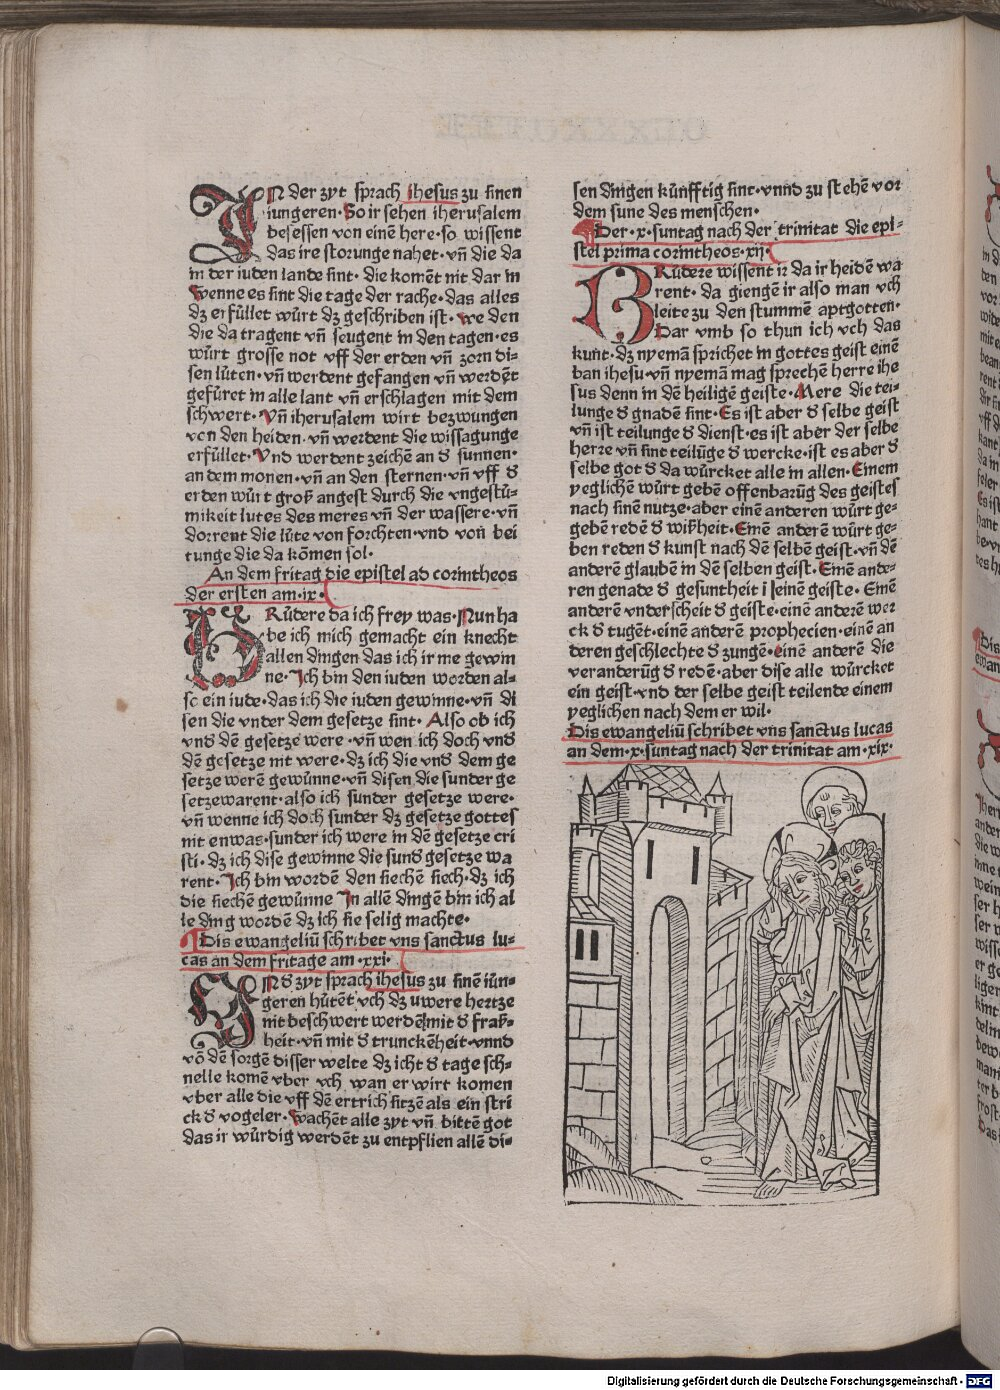 IN der zyt sprach ihesus zu sinen
iungeren· So ir sehen iherusalem
besessen von einē here· so wissent
das ire storunge nahet· vn̄ die da
in der iuden lande sint· die komēt nit dar in
Wenne es sint die tage der rache· das alles
dz erfüllet würt dz geschriben ist· we den
die da tragent vn̄ seugent in den tagen· es
würt grosse not vff der erden vn̄ zorn di⸗
sen lüten· vn̄ werdent gefangen vn̄ werdēt
gefüret in alle lant vn̄ erschlagen mit dem
schwert· Vn̄ iherusalem wirt bezwungen
von den heiden· vn̄ werdent die wissagunge
erfüllet· Vnd werdent zeichē an d sunnen·
an dem monen· vn̄ an den sternen· vn̄ vff d
erden würt groß angest durch die vngestü⸗
mikeit lutes des meres vn̄ der wassere· vn̄
dorrent die lüte von forchten· vnd von bei
tunge die da kōmen sol·
An dem fritag die epistel ad corintheos
der ersten am·ix·
BRůdere da ich frey was· Nun ha
be ich mich gemacht ein knecht
allen dingen das ich ir me gewin
ne· Ich bin den iuden worden al⸗
so ein iude· das ich die iuden gewinne· vn̄ di
sen die vnder dem gesetze sint· Also ob ich
vnd dē gesetze were· vn̄ wen ich doch vnd
dē gesetze nit were· dz ich die vnd dem ge
setze werē gewünne· vn̄ disen die sunder ge
setze warent· also ich sunder gesetze were·
vn̄ wenne ich doch sunder dz gesetze gottes
nit enwas· sunder ich were in dē gesetze cri
sti· dz ich dise gewinne die sund gesetze wa
rent· Ich bin wordē den siechē siech· dz ich
die siechē gewünne In allē dingē bin ich al
le ding wordē dz ich sie selig machte·
Dis ewangeliū schribet vns sanctus lu⸗
cas an dem fritage am·xxi·
IN d zyt sprach ihesus zu sinē iün⸗
geren hütēt vch dz uwere hertze
nit beschwert werdē mit d fraß⸗
heit· vn̄ mit d trunckēheit· vnnd
vō dē sorgē disser welte dz icht d tage sch⸗
nelle komē vber vch wan er wirt komen
vber alle die vff dē ertrich sitzē als ein stri
ck d vogeler· Wachēt alle zyt vn̄ bittē got
das ir würdig werdēt zu entpflien allē di⸗
sen dingen künfftig sint· vnnd zu stehē vor
dem sune des menschen·
Der·x·suntag nach der trinitat die epi⸗
stel prima corintheos·xij·
BRůdere wissent ir da ir heidē wa
rent· da giengē ir also man vch
leite zu den stummē aptgotten·
Dar vmb so thun ich vch das
kunt· dz nyemā sprichet in gottes geist einē
ban ihesu· vn̄ nyemā mag sprechē herre ihe
sus denn in dē heiligē geiste· Mere die tei⸗
lunge d gnadē sint· Es ist aber d selbe geist
vn̄ ist teilunge d dienst· es ist aber der selbe
herre vn̄ sint teilūge d wercke· ist es aber d
selbe got d da würcket alle in allen· Einem
yeglichē würt gebē offenbarūg des geistes
nach sinē nutze· aber einē anderen würt ge⸗
gebē redē d wißheit· Einē anderē würt ge⸗
ben reden d kunst nach dē selbē geist· vn̄ dē
anderē glaubē in dē selben geist· Einē ande⸗
ren genade d gesuntheit i einē geiste· Einē
anderē vnderscheit d geiste· einē anderē wer
ck d tugēt· einē anderē prophecien· einē an
deren geschlechte d zungē· einē anderē die
veranderūg d redē· aber dise alle würcket
ein geist· vnd der selbe geist teilende einem
yeglichen nach dem er wil·
Dis ewangeliū schribet vns sanctus lucas
an dem·x·suntag nach der trinitat am·xix·
Digitalisierung gefördert durch die Deutsche Forschungsgemeinschaft - DFG